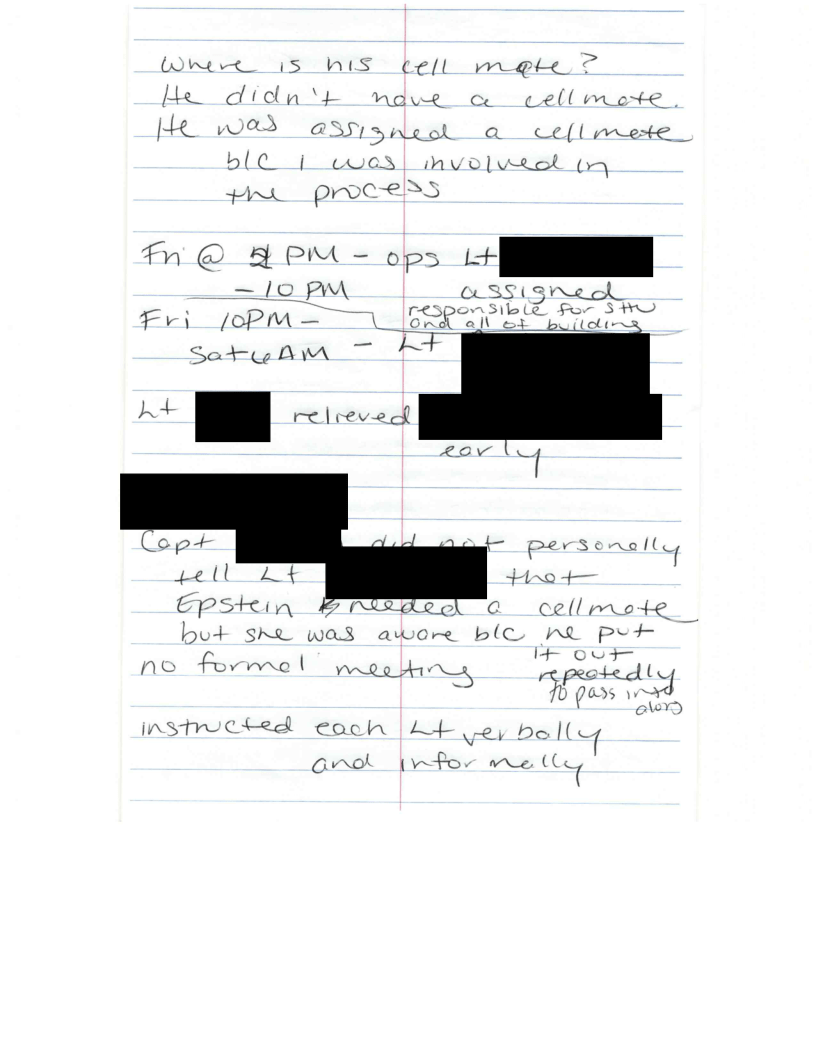 Where is his cell mate?
He didn't have a cellmate.
He was assigned a cellmate
b/c I was involved in
the process
Fri @ PM - ops Lt
- 10 PM assigned
responsible for SHU
and all of building
Fri 10PM -
Sat 6AM - Lt
Lt relieved
early
Capt did not personally
tell Lt that
Epstein needed a cellmate
but she was aware b/c he put
it out
repeatedly
to pass info
along
no formal meeting
instructed each Lt verbally
and informally